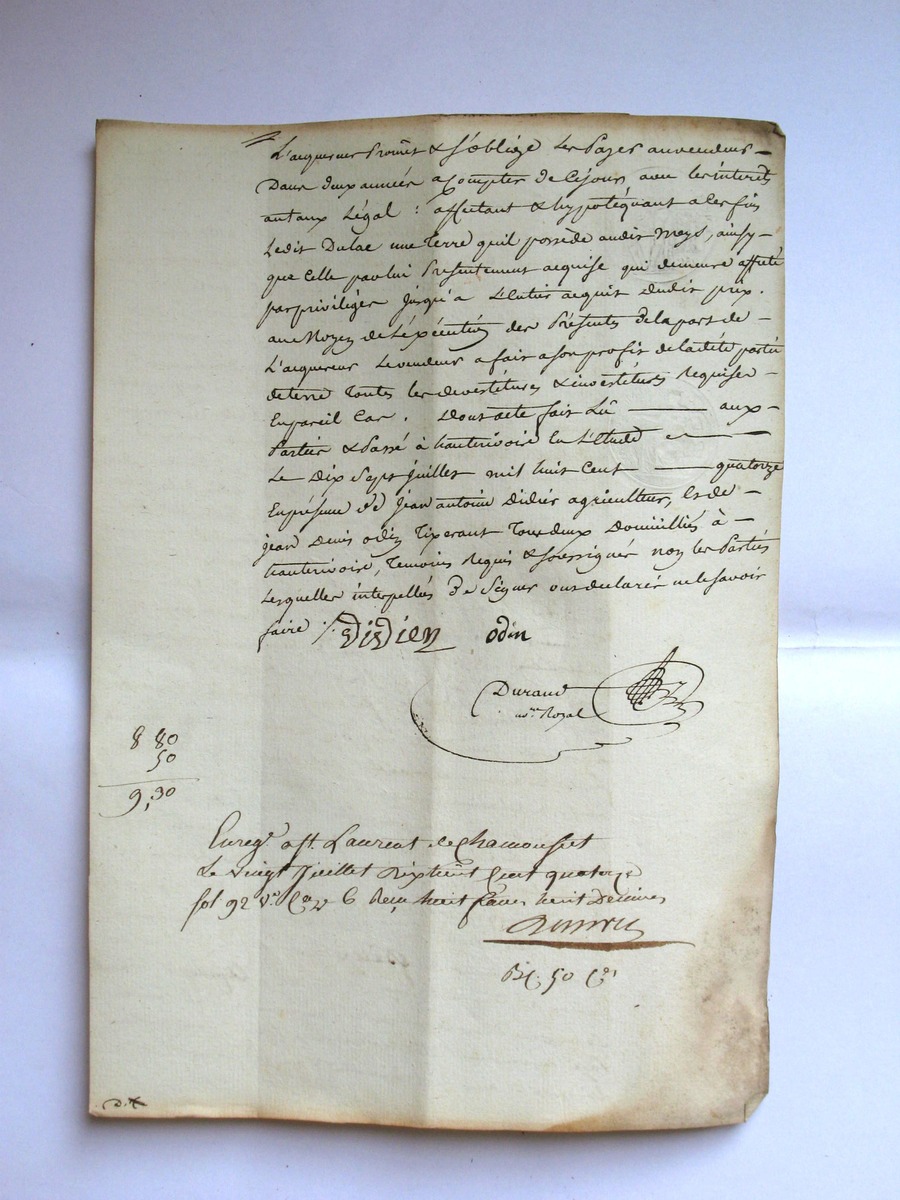 L'acquereur Promet & s'oblige de les Payer au vendeur
Dans deux années a Compter de Cejour, avec les interets
au taux Légal : affectant & hypotéquant a ces fins
Ledit Dulac une Terre quil possède audit Mays, ainsy
que Celle par lui Presentement acquise qui demeure affecté
par privilége Jusqu'a L'Entier acquit dudit prix.
au Moyen de L'éxécution des Présentes de la part de
L'acquereur Le vendeur a fait a son profit de ladite partie
de terre Toutes les devestitures & investitures Requises
En pareil Cas. Dont acte fait Lû aux
Parties & Passé à hauterivoire En L'Etude
Le Dix Sept Juillet mil huit Cent quatorze
En présence de Jean antoine Didier agriculteur, & de
Jean Denis odin Tixerant Tous deux Domiciliés à
hauterivoire, Temoins Requis & soussignés non les Parties
Lesquelles interpellés De Signer ont declarés ne le savoir
faire ./. Didier odin
Durand
nre Royal
8 80
50
9,30
Enregé à St Laurent de Chamousset
Le vingt Juillet dixhuit Cent quatorze
fol 92 vo Case 6 Reçu huit francs huit Decimes
50 Cs